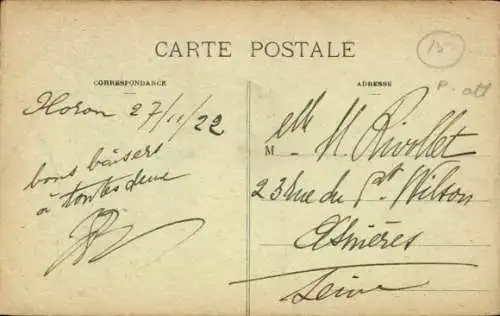 CARTE POSTALE
CORRESPONDANCE
27/11/22
bons baisers
à toutes deux
ADRESSE
Melle M Rivollet
23 rue du Pt Wilson
Asnières
Seine
15